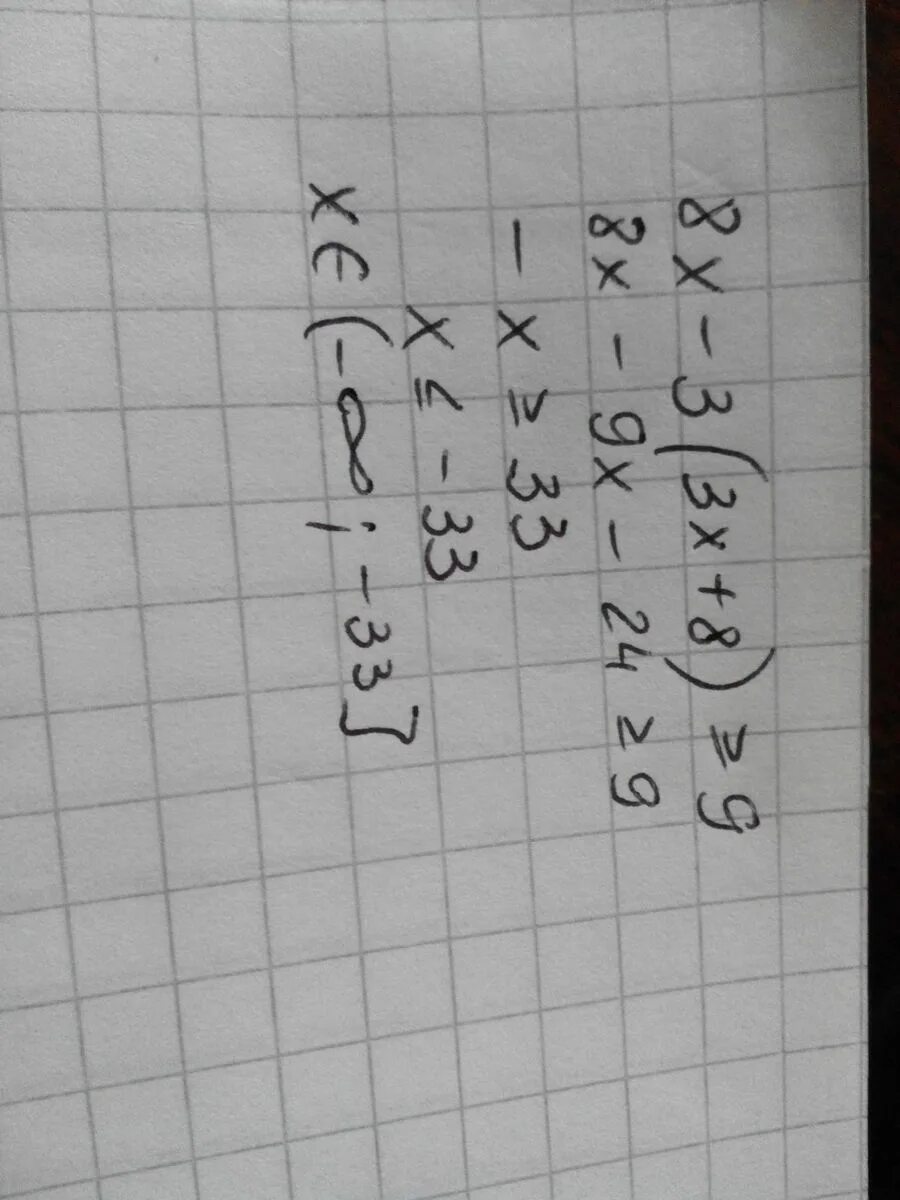 8x - 3(3x + 8) ≥ 9
8x - 9x - 24 ≥ 9
- x ≥ 33
x ≤ - 33
x ∈ (-∞; -33]